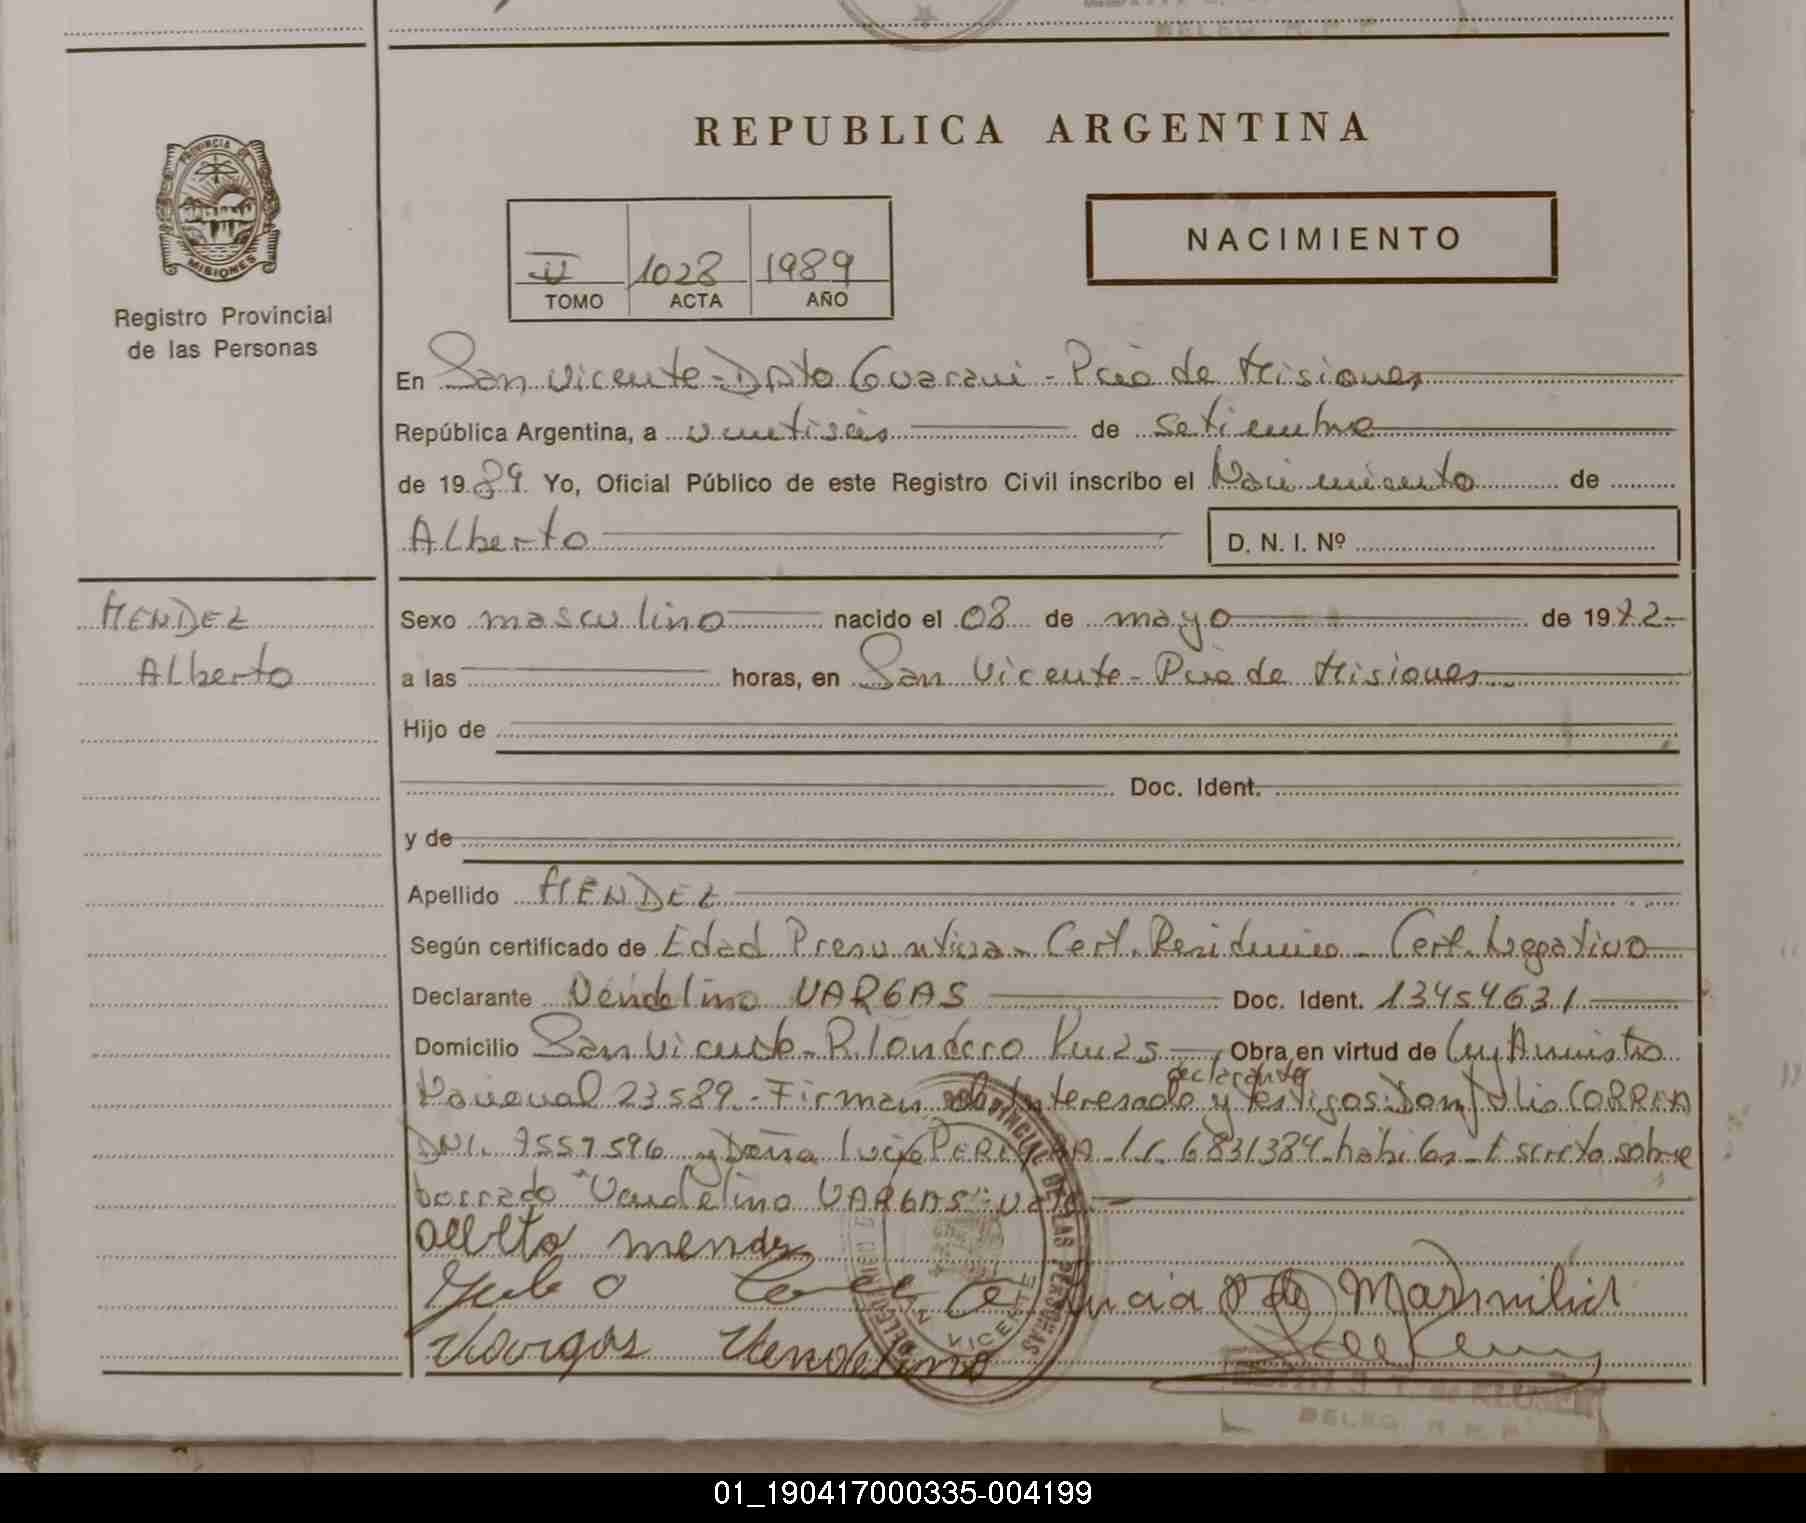 REPUBLICA ARGENTINA
PROVINCIA DE
MISIONES
Registro Provincial
de las Personas
II 1028 1989
TOMO ACTA AÑO
NACIMIENTO
En San Vicente - Dpto Guarani - Pcia de Misiones
República Argentina, a veintiseis de setiembre
de 1989 Yo, Oficial Público de este Registro Civil inscribo el Nacimiento de
Alberto D. N. I. Nº
MENDEZ
Alberto
Sexo masculino nacido el 08 de mayo de 1972
a las horas, en San Vicente - Pcia de Misiones
Hijo de
Doc. Ident.
y de
Apellido MENDEZ
Según certificado de Edad Presuntiva - Cert. Residencia - Cert. Negativo
Declarante Vendelino VARGAS Doc. Ident. 13454631
Domicilio San Vicente - R. Londero Obra en virtud de Ley
declarante
23589 - Firman interesado y testigos: Don Julio CORREA
DNI. 7557596 y Doña Lucia PEREYRA L.C. 6831384 habiles - Escrito sobre
borrado "Vendelino VARGAS": Vale.
Mendez
Julio Correa Lucia P de
Vargas Vendelino
PROVINCIAL DE LAS PERSONAS
VICENTE
DELEG. R.P.P.
01_190417000335-004199